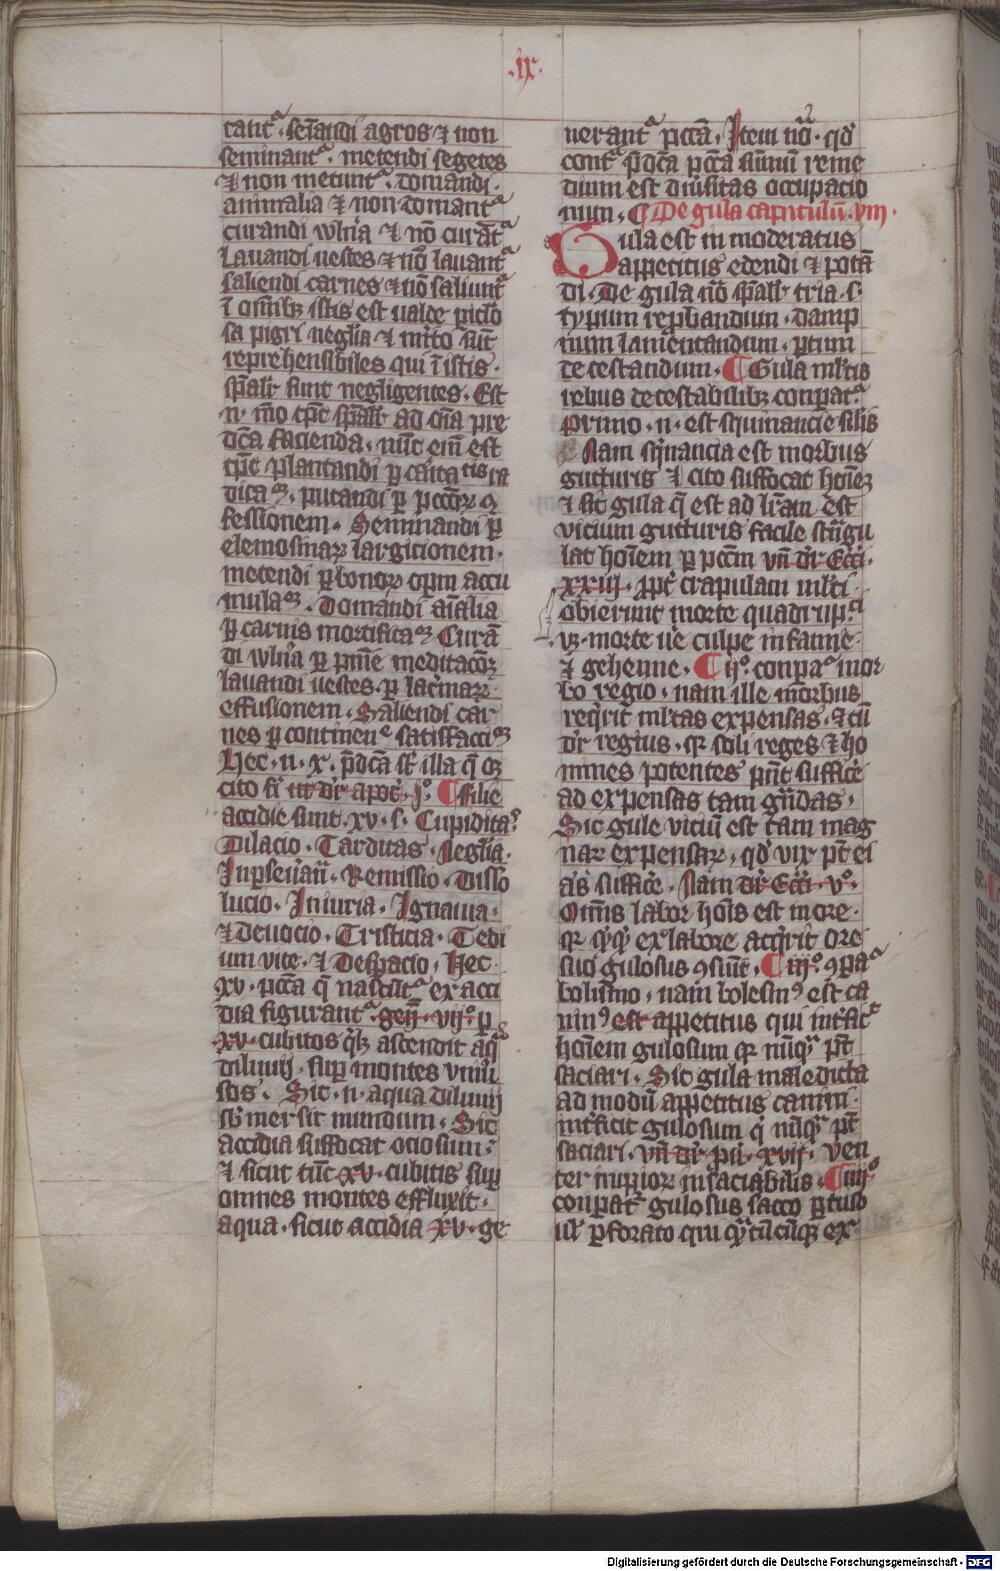 .ix.
tant᷒. sei̅andi agros ⁊ non
seminant᷒. metendi segetes
⁊ non metunt᷒. Domandi.
animalia ⁊ non domant᷒
curandi vuln̅a ⁊ no̅ cura̅t᷒
Lauandi uestes ⁊ no̅ lauant᷒
saliendi carnes ⁊ no̅ saliunt᷒
i̅ om̅ibꝫ istis est ualde piclo̅
sa pigri neglia̅ ⁊ mito̅ su̅t
reprehensibiles qui i̅ istis.
spa̅lr sunt negligentes. Est
.n. mo̅ tp̅c spa̅lr ad oi̅a pre
dca̅ facienda. nu̅c em̅ est
tp̅c plantandi ꝑ caritatis ra
dica. putandi ꝑ pcco̅ꝝ ꝯ
fessionem. Seminandi ꝑ
elemosinaꝝ largicionem.
metendi ꝑ bonoꝝ opm̅ accu
mula. Domandi ai̅alia
ꝑ carnis mortifica. Cura̅
di vuln̅a ꝑ pini̅e meditaco̅ꝫ
lauandi uestes. ꝑ lacrimaꝝ
effusionem. Saliendi car
nes ꝑ continen satisfacci
Hec. n. x. pd̅ca st̅ illa q̅
cito fi̅ ut dr̅ apoc̅. i°. ¶ filie
accidie sunt. xv. s. Cupidita᷒
Dilacio. Tarditas. Neglia̅.
Inpseueran̅. Remissio. Disso
lucio. Iniuria. Ignauia.
⁊ Deuocio. Tristicia. Tedi
um vite. ⁊ Despacio. Hec
xv. pcca̅ q̅ nascu̅t᷒ ex acci
dia figurant᷒. gen̅. vij°. ꝑ
xv. cubitos qꝫ ascendit aq̅
diluuij. suꝑ montes vniu
sos. Sic. n. aqua diluuij
sb̅mersit mundum. Sic
accidia suffocat ociosum:
⁊ sicut tu̅c xv. cubitis suꝑ
omnes montes effluxit.
aqua. sicut accidia xv. ge
nerant᷒ pcca̅. Item no̅. qd̅
cont᷒ pd̅ca pcca̅ su̅mu̅ reme
dium est diu̅sitas occupacio
num. ¶ De gula capitulu̅. viij.
Gula est in moderatus
appetitus edendi ⁊ pota̅
di. De gula no̅ spa̅lr tria. s.
typum rephandium. damp
num lamentandum. ꝑtium
detestandum. ¶ Gula ml̅tis
rebus detestabilibꝫ conpat᷒.
Primo. n. est squinancie silis
Nam sqi̅nancia est morbus
gutturis ⁊ cito suffocat hoi̅eꝫ
⁊ sic gula q̅ est ad lr̅am est
vicium gutturis facile st̅ngu
lat hoi̅em ꝑ pcc̅m vn̅ dr̅ Ecci̅.
xxiij. ppt̅ crapulam ml̅ti.
obierunt morte quadrup.ci
vꝫ. morte ue culpe infamie.
⁊ gehenne. ¶ ij°. conpa᷒ mor
bo regio. nam ille morbus
reqrit ml̅tas expensas. ⁊ cu̅
dr̅ regius. qꝛ soli reges ⁊ ho
mines potentes pn̅t suffice̅
ad expensas tam gn̅das.
Sic gule viciu̅ est tam mag
naꝝ expensaꝝ. qd̅ vix pt̅ ei
as̅ suffice̅. Nam dr̅ Ecci̅. v°.
Omnis labor hois̅ est in ore.
qꝛ qꝗꝗ ex labore acqrit ore
suo gulosus ꝯsu̅it. ¶ iij°. ꝯpa᷒
bolismo. nam bolesin᷒ est ca
nin᷒ est appetitus qui int̅fic̅
hoi̅em gulosum qꝛ nu̅qꝫ pt̅
saciari. Sic gula maledicta
ad modu̅ appetitus canini.
int̅ficit gulosum q̅ nu̅qꝫ pt̅
saciari. vn̅ dr̅ pu̅. xvij. Ven
ter impior̅ insaciabilis. ¶ iiij°
conpat᷒ gulosus sacco ꝑtuso
ul̅ ꝑforato qui qn̅tu̅cu̅qꝫ ex
Digitalisierung gefördert durch die Deutsche Forschungsgemeinschaft - DFG